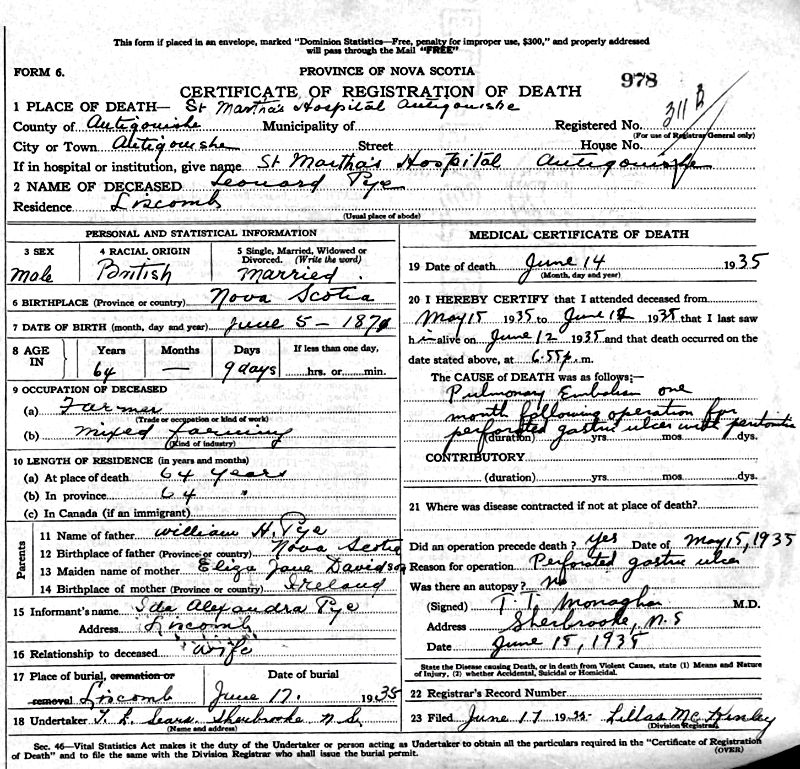 This form if placed in an envelope, marked "Dominion Statistics—Free, penalty for improper use, $300," and properly addressed
will pass through the Mail "FREE"
FORM 6.
PROVINCE OF NOVA SCOTIA
978
CERTIFICATE OF REGISTRATION OF DEATH
1 PLACE OF DEATH— St Martha's Hospital Antigonishe
311 B
County of Antigonishe Municipality of Registered No.
(For use of Registrar General only)
City or Town Antigonishe Street House No.
If in hospital or institution, give name St Martha's Hospital Antigonishe
2 NAME OF DECEASED Leonard Pye
Residence Liscomb
(Usual place of abode)
PERSONAL AND STATISTICAL INFORMATION
3 SEX 4 RACIAL ORIGIN 5 Single, Married, Widowed or Divorced. (Write the word)
Male British Married.
6 BIRTHPLACE (Province or country) Nova Scotia
7 DATE OF BIRTH (month, day and year) June 5 - 1871
8 AGE IN Years Months Days If less than one day,
64 — 9 days hrs. or min.
9 OCCUPATION OF DECEASED
(a) Farmer
(Trade or occupation or kind of work)
(b) mixed farming
(Kind of industry)
10 LENGTH OF RESIDENCE (in years and months)
(a) At place of death 64 years
(b) In province 64 "
(c) In Canada (if an immigrant)
Parents
11 Name of father William H. Pye
12 Birthplace of father (Province or country) Nova Scotia
13 Maiden name of mother Eliza Jane Davidson
14 Birthplace of mother (Province or country) Ireland
15 Informant's name Ida Alexandra Pye
Address Liscomb
16 Relationship to deceased Wife
17 Place of burial, cremation or removal Liscomb Date of burial June 17. 1935
18 Undertaker T. L. Sears Sherbrooke N.S.
(Name and address)
MEDICAL CERTIFICATE OF DEATH
19 Date of death June 14 1935
(Month, day and year)
20 I HEREBY CERTIFY that I attended deceased from
May 15 1935 to June 12 1935 that I last saw
him alive on June 12 1935 and that death occurred on the
date stated above, at 6.55 p. m.
The CAUSE of DEATH was as follows:—
Pulmonary Embolism one
month following operation for
perforated gastric ulcer with peritonitis
(duration) yrs. mos. dys.
CONTRIBUTORY
(duration) yrs. mos. dys.
21 Where was disease contracted if not at place of death?
Did an operation precede death? yes Date of May 15, 1935
Reason for operation Perforated gastric ulcer
Was there an autopsy? No
(Signed) T. T. Monaghan M.D.
Address Sherbrooke, N.S
Date June 15, 1935
State the Disease causing Death, or in death from Violent Causes, state (1) Means and Nature
of Injury, (2) whether Accidental, Suicidal or Homicidal.
22 Registrar's Record Number
23 Filed June 17 1935 Lillas McKinley
(Division Registrar)
Sec. 46—Vital Statistics Act makes it the duty of the Undertaker or person acting as Undertaker to obtain all the particulars required in the "Certificate of Registration
of Death" and to file the same with the Division Registrar who shall issue the burial permit.
(OVER)